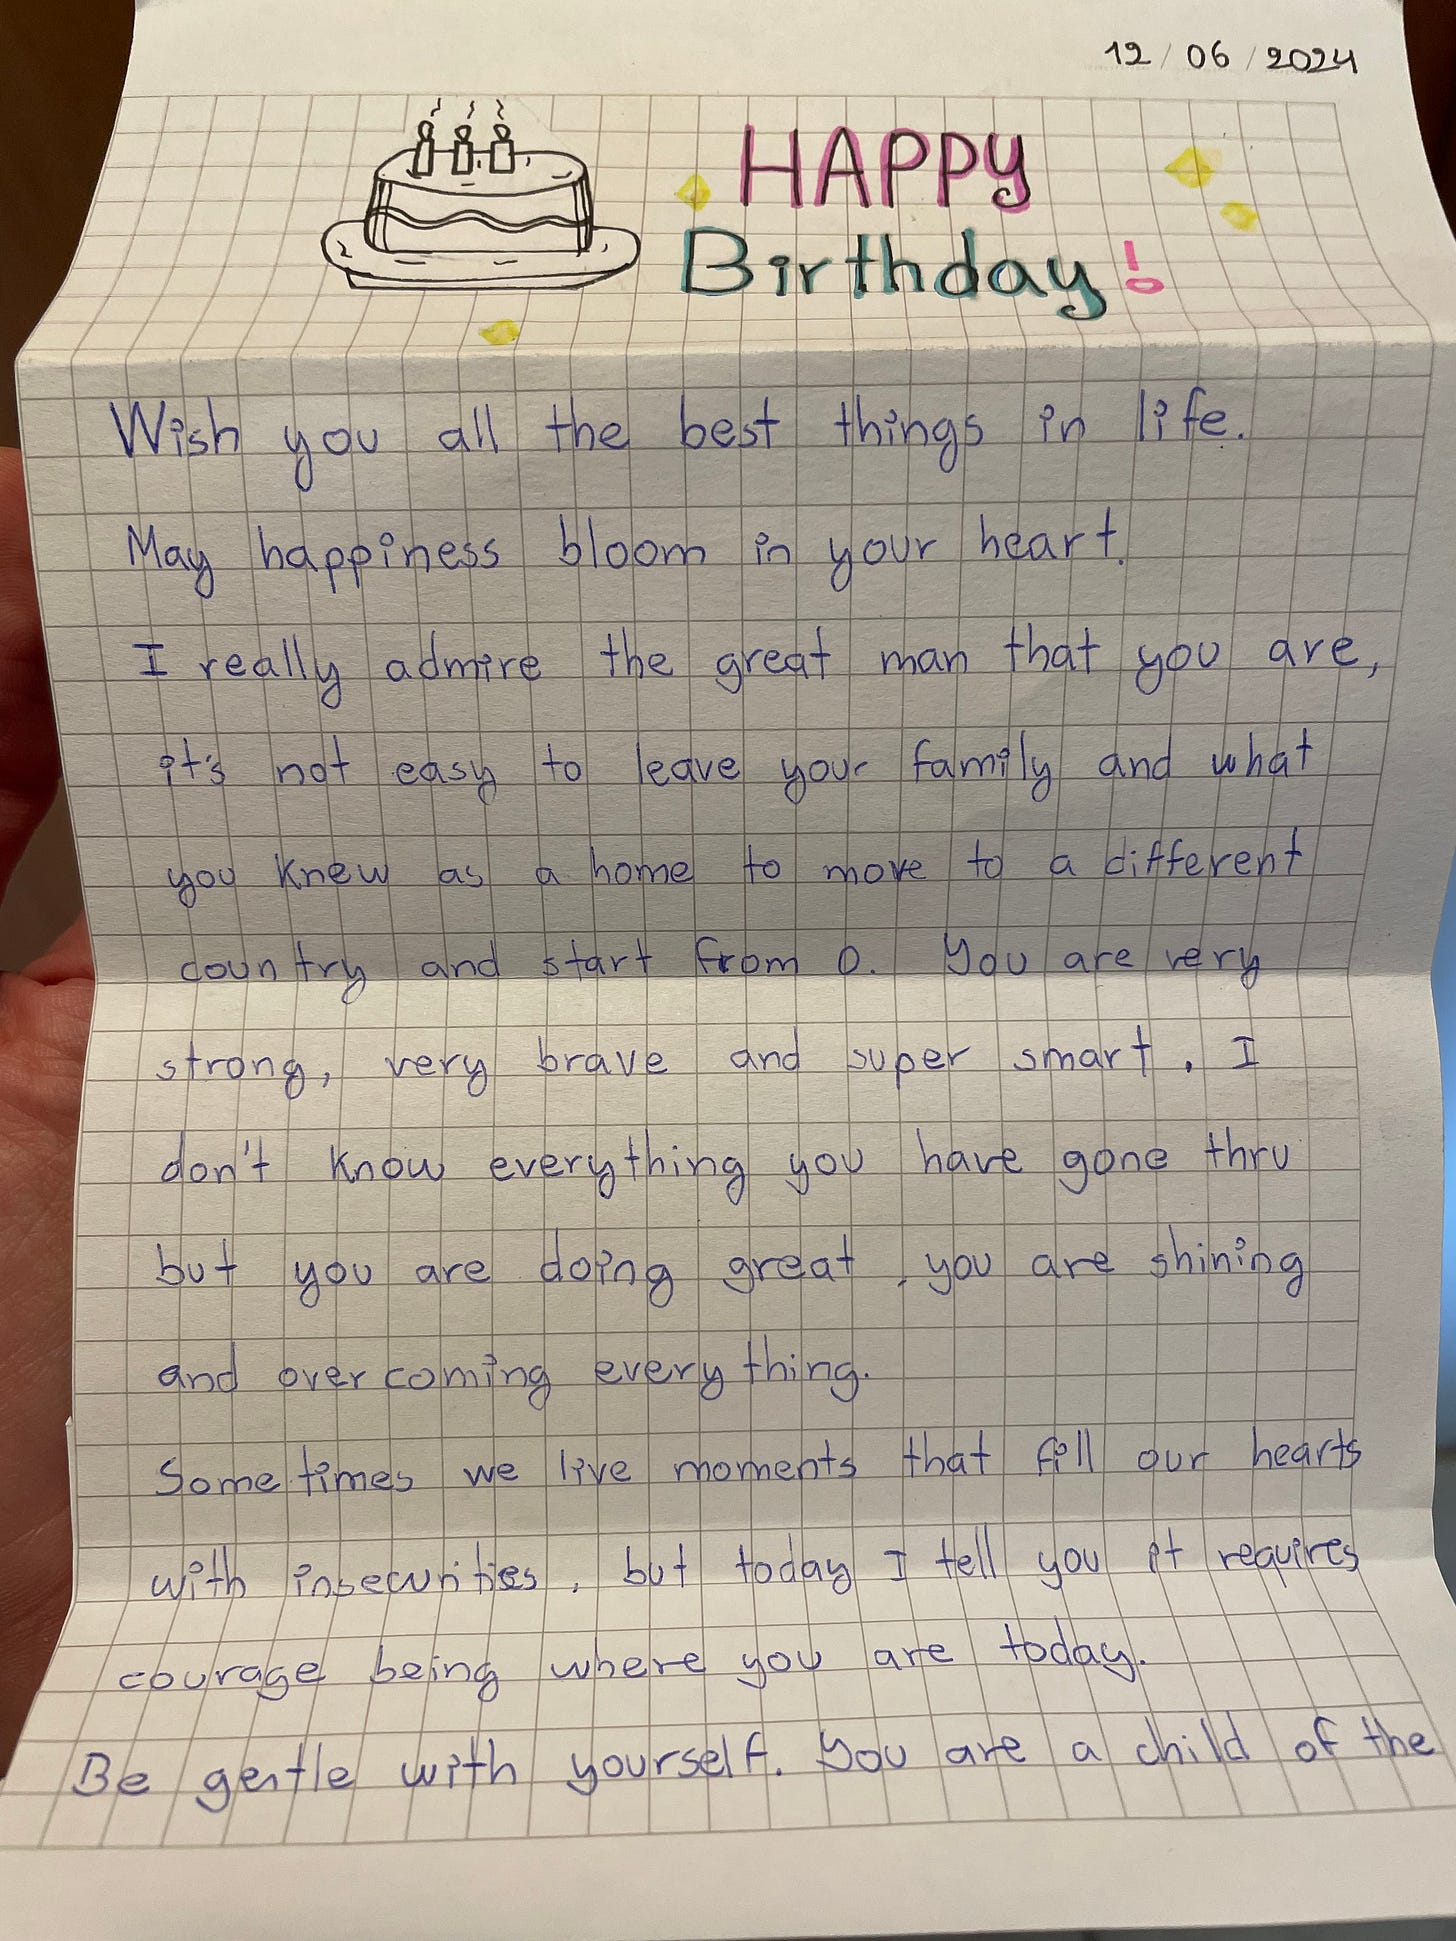 12/06/2024
HAPPY
Birthday!
Wish you all the best things in life.
May happiness bloom in your heart.
I really admire the great man that you are,
it's not easy to leave your family and what
you knew as a home to move to a different
country and start from 0. You are very
strong, very brave and super smart. I
don't know everything you have gone thru
but you are doing great, you are shining
and overcoming everything.
Sometimes we live moments that fill our hearts
with insecurities, but today I tell you it requires
courage being where you are today.
Be gentle with yourself. You are a child of the